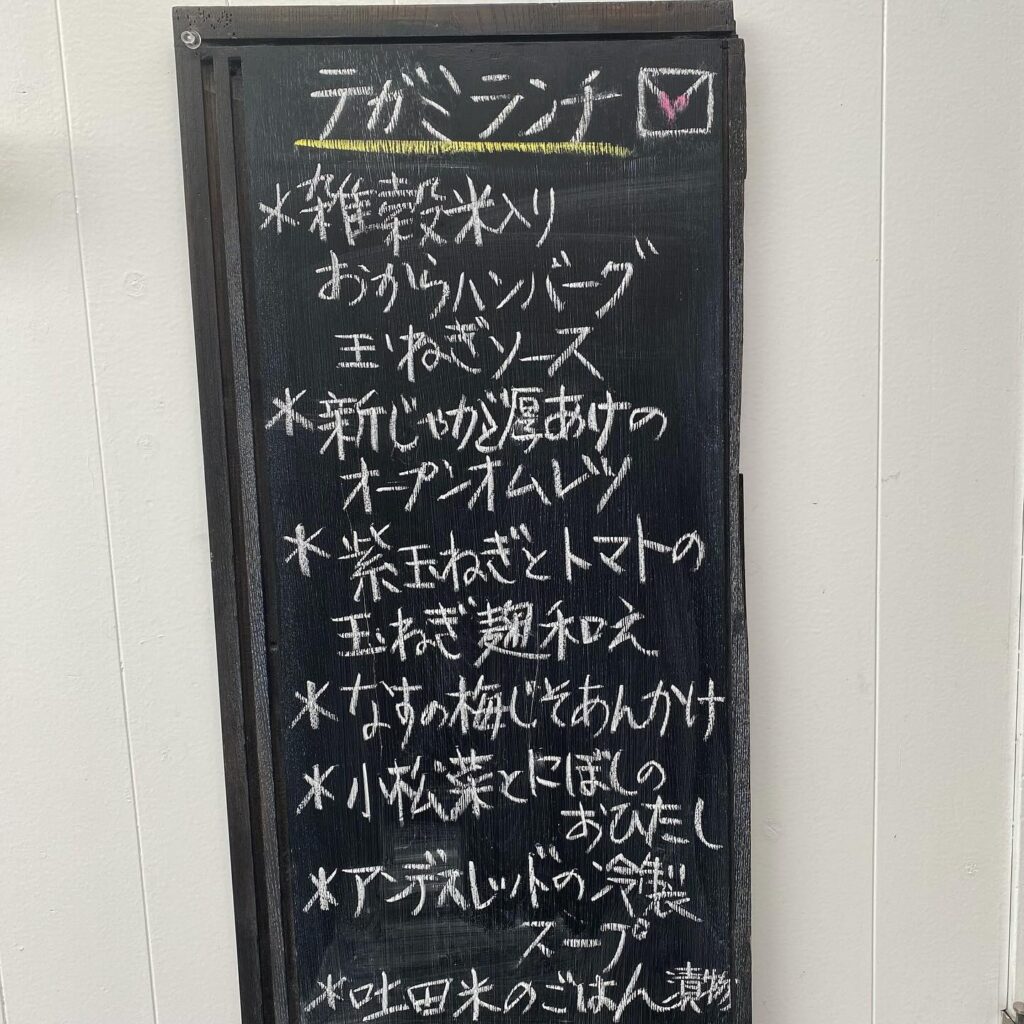 テガミランチ
*雑穀米入り
おからハンバーグ
玉ねぎソース
*新じゃがと厚あげの
オープンオムレツ
*紫玉ねぎとトマトの
玉ねぎ麹和え
*なすの梅じそあんかけ
*小松菜とにぼしの
おひたし
*アンデスレッドの冷製
スープ
*吐田米のごはん 漬物